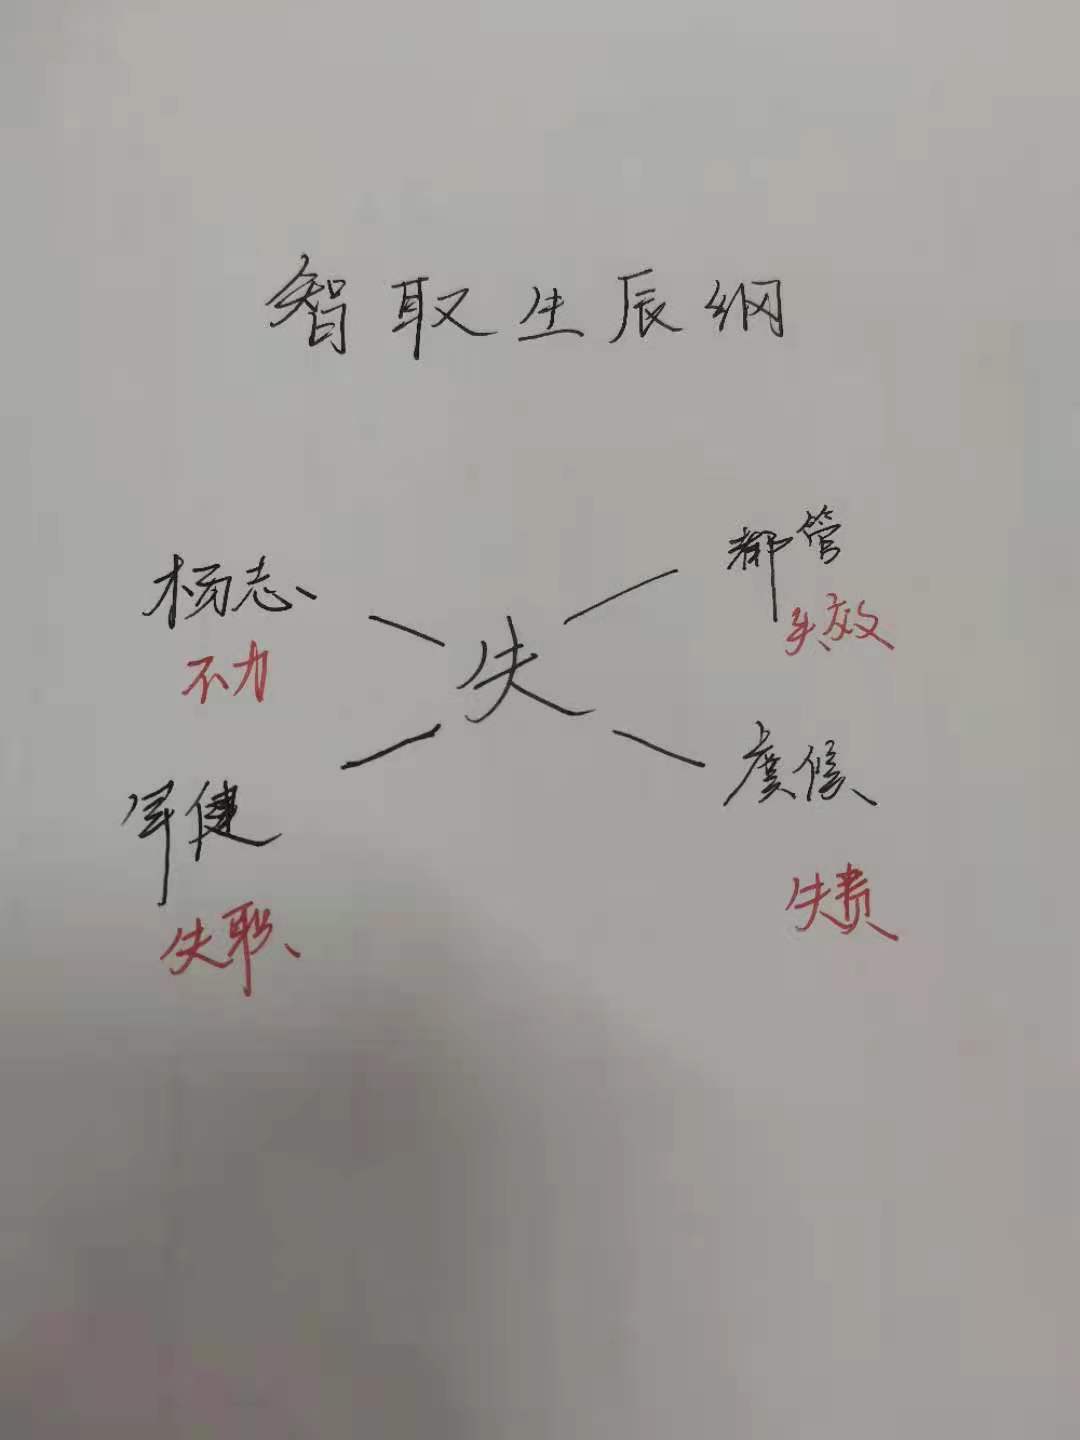 智取生辰纲
杨志
不力
都管
失效
失
军健
失职
虞候
失责